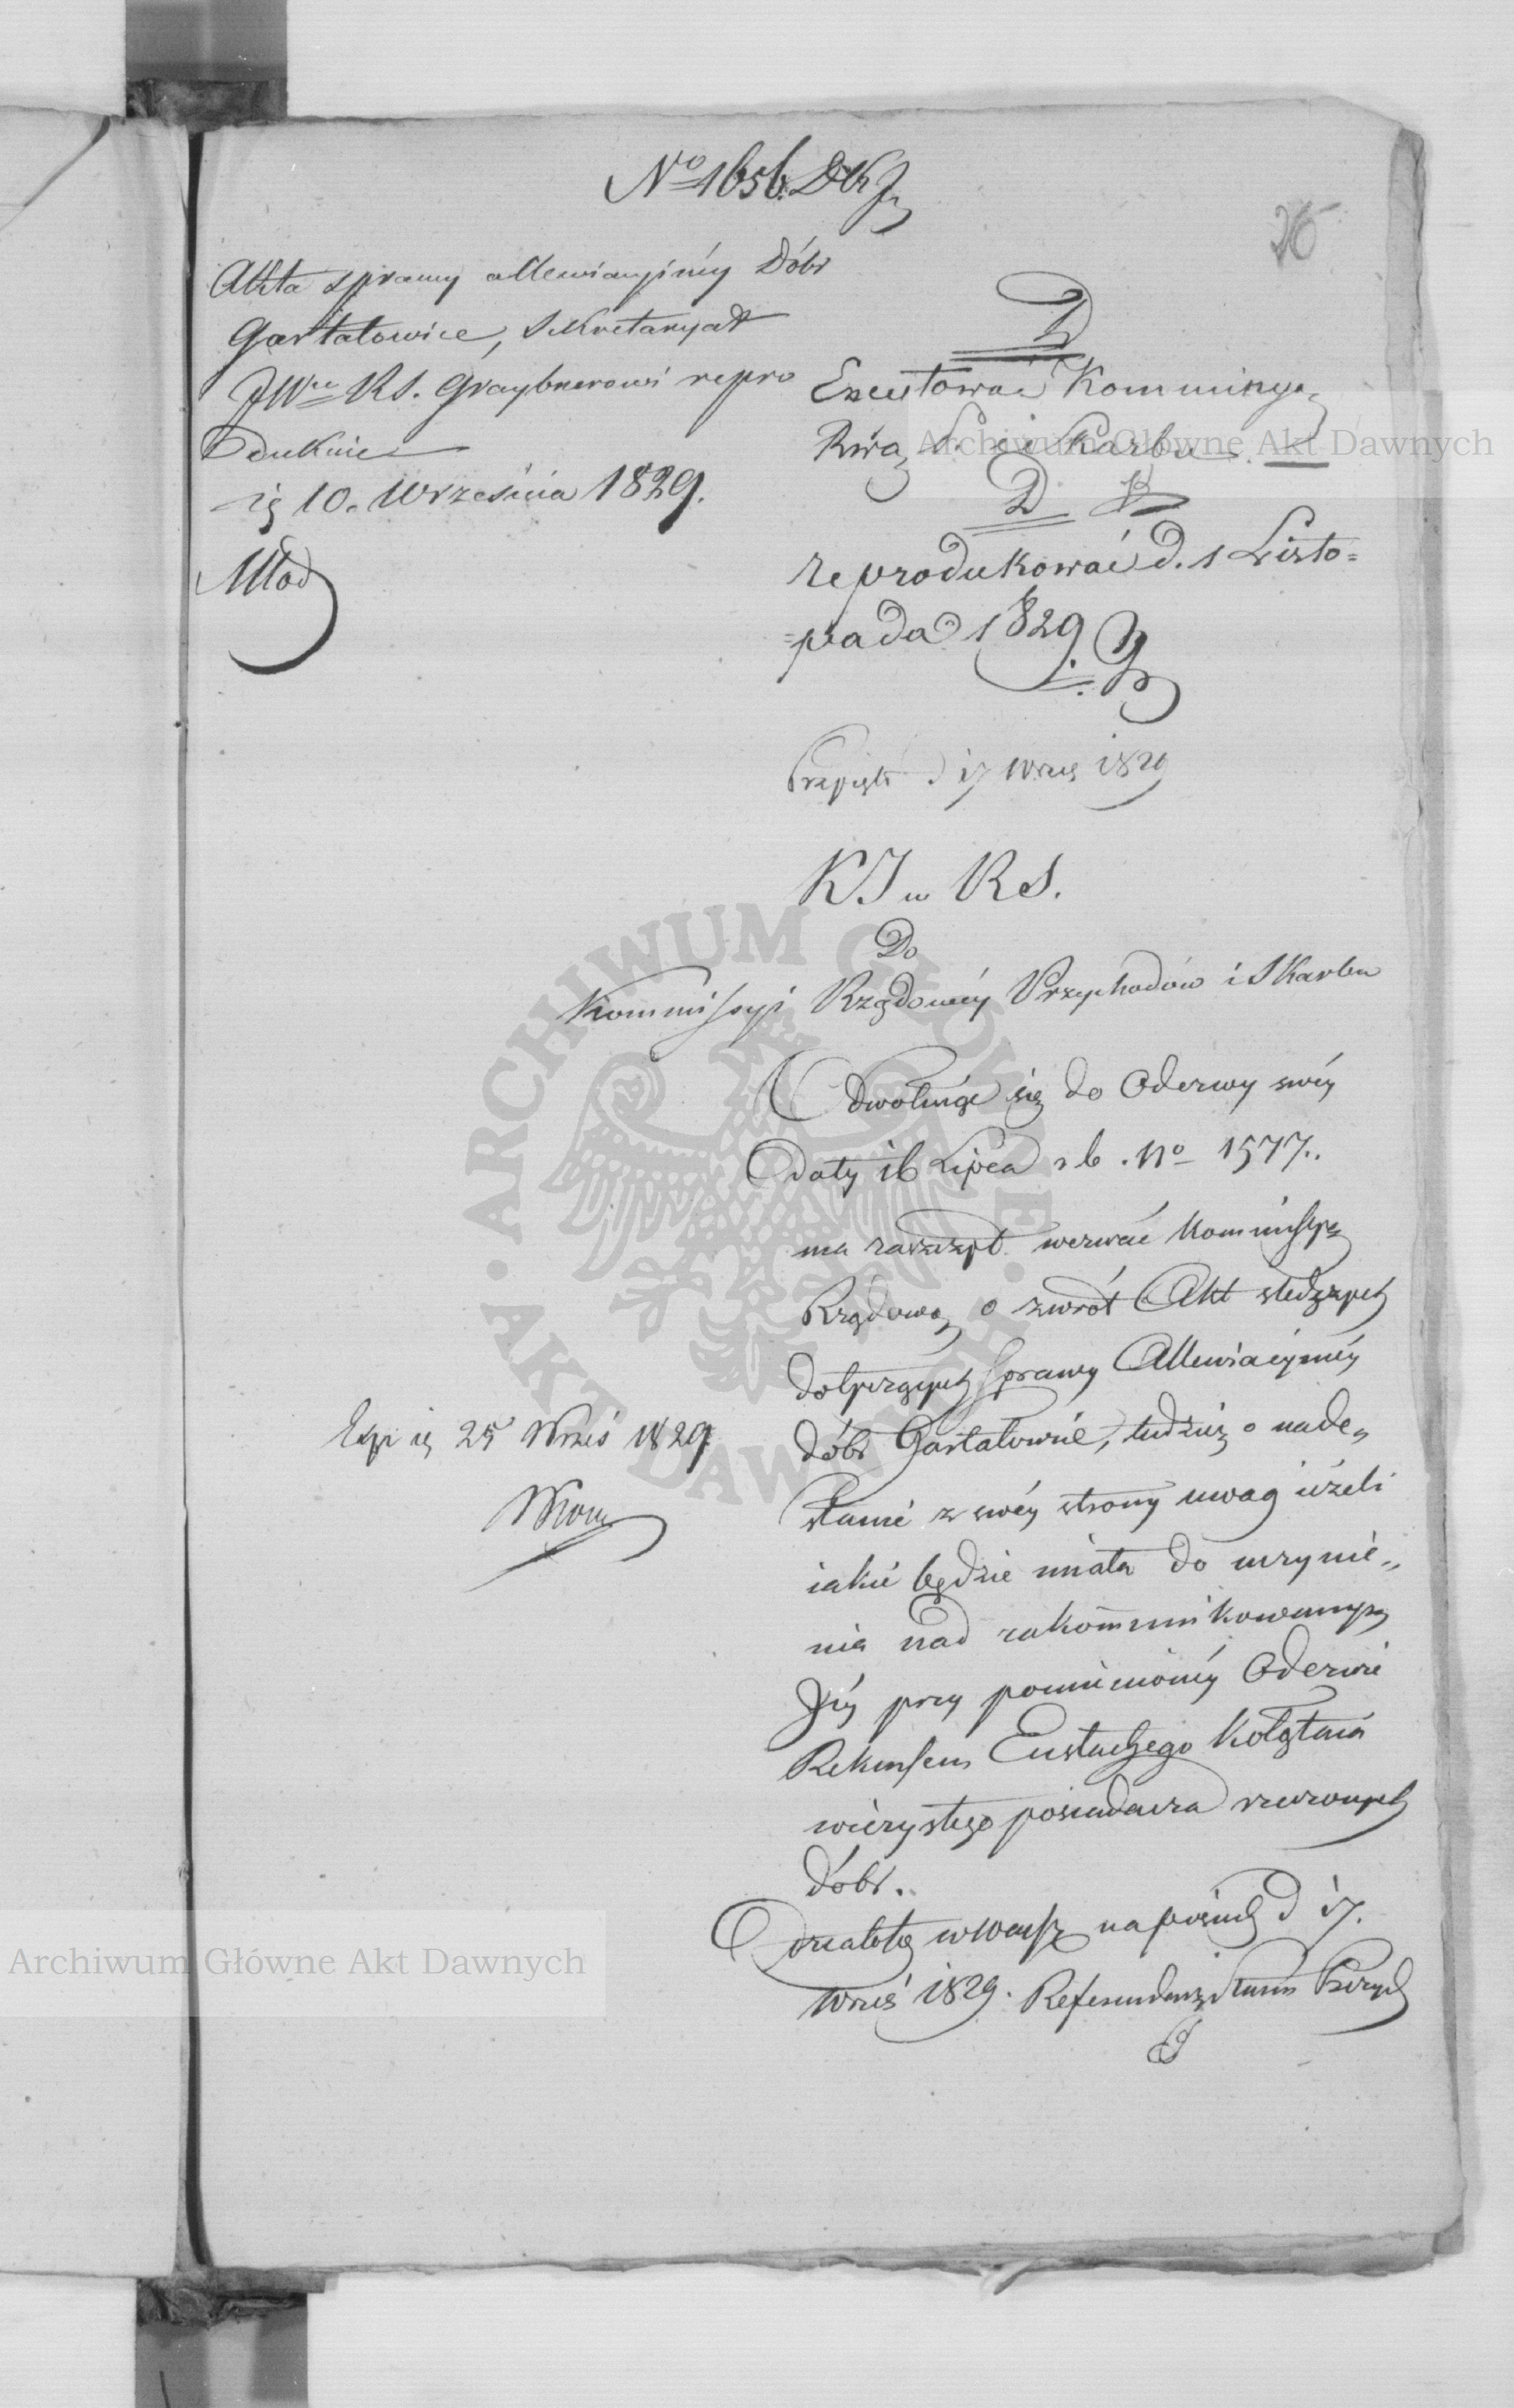 No 1656.
26
Akta sprawy allewiacyinéy Dóbr
Gartatowice, Sekretaryat
JWu RS. Graybnerowi repro
dukuie
ię 10. Września 1829.
Młod
D
Excytować Kommissyą
Rząd. P. i Skarbu.
D
reprodukować d. 1 Listo=
=pada 1829
d 17 Wrześ 1829
K J w R S.
Do
Kommissyi Rządowéy Przychodów i Skarbu
Odwołuiąc się do Odezwy swéy
Daty 16 Lipca r b . No 1577..
ma zaszczyt wezwać Kommissyą
Rządową o zwrót Akt śledczych
dotyczących sprawy Allewiacyinéy
dóbr Gartatowice, tudzież o nade„
słanie z swéy strony uwag ieżeli
iakie będzie miała do uczynie„
nia nad zakommunikowanym
Jéy przy pomienionéy Odezwie
Rekursem Eustachego Kołłątaia
wieczystego posiadacza rzeczonych
dóbr.
Działo się w Warsz na posiedz d 17.
Wrześ 1829. Referendarz Stanu Prezyd
Exp ię 25 Wrześ 1829
ARCHIWUM GŁÓWNE AKT DAWNYCH
Archiwum Główne Akt Dawnych
Archiwum Główne Akt Dawnych